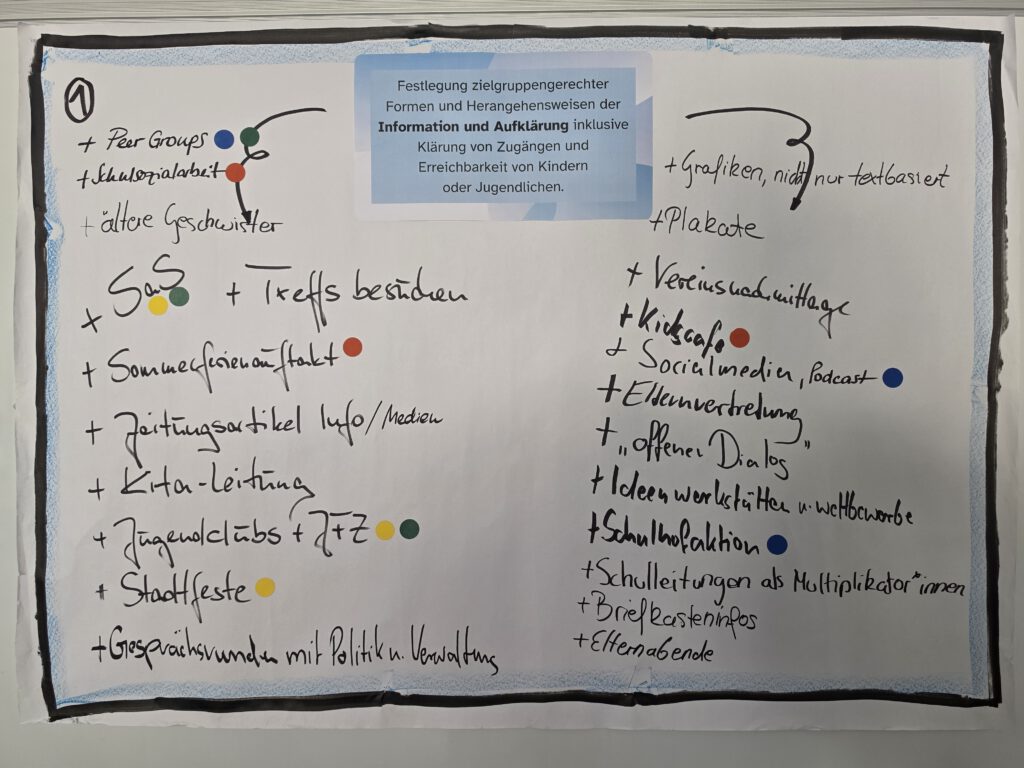 1
Festlegung zielgruppengerechter
Formen und Herangehensweisen der
Information und Aufklärung inklusive
Klärung von Zugängen und
Erreichbarkeit von Kindern
oder Jugendlichen.
+ Peer Groups
+ Schulsozialarbeit
+ ältere Geschwister
+ SaS + Treffs besuchen
+ Sommerferienauftakt
+ Zeitungsartikel Info/Medien
+ Kita-Leitung
+ Jugendclubs + JFZ
+ Stadtfeste
+ Gesprächsrunden mit Politik u. Verwaltung
+ Grafiken, nicht nur textbasiert
+ Plakate
+ Vereinsnachmittage
+ Kidscafe
+ Socialmedia, Podcast
+ Elternvertretung
+ „offener Dialog"
+ Ideenwerkstätten u. wettbewerbe
+ Schulhofaktion
+ Schulleitungen als Multiplikator*innen
+ Briefkasteninfos
+ Elternabende